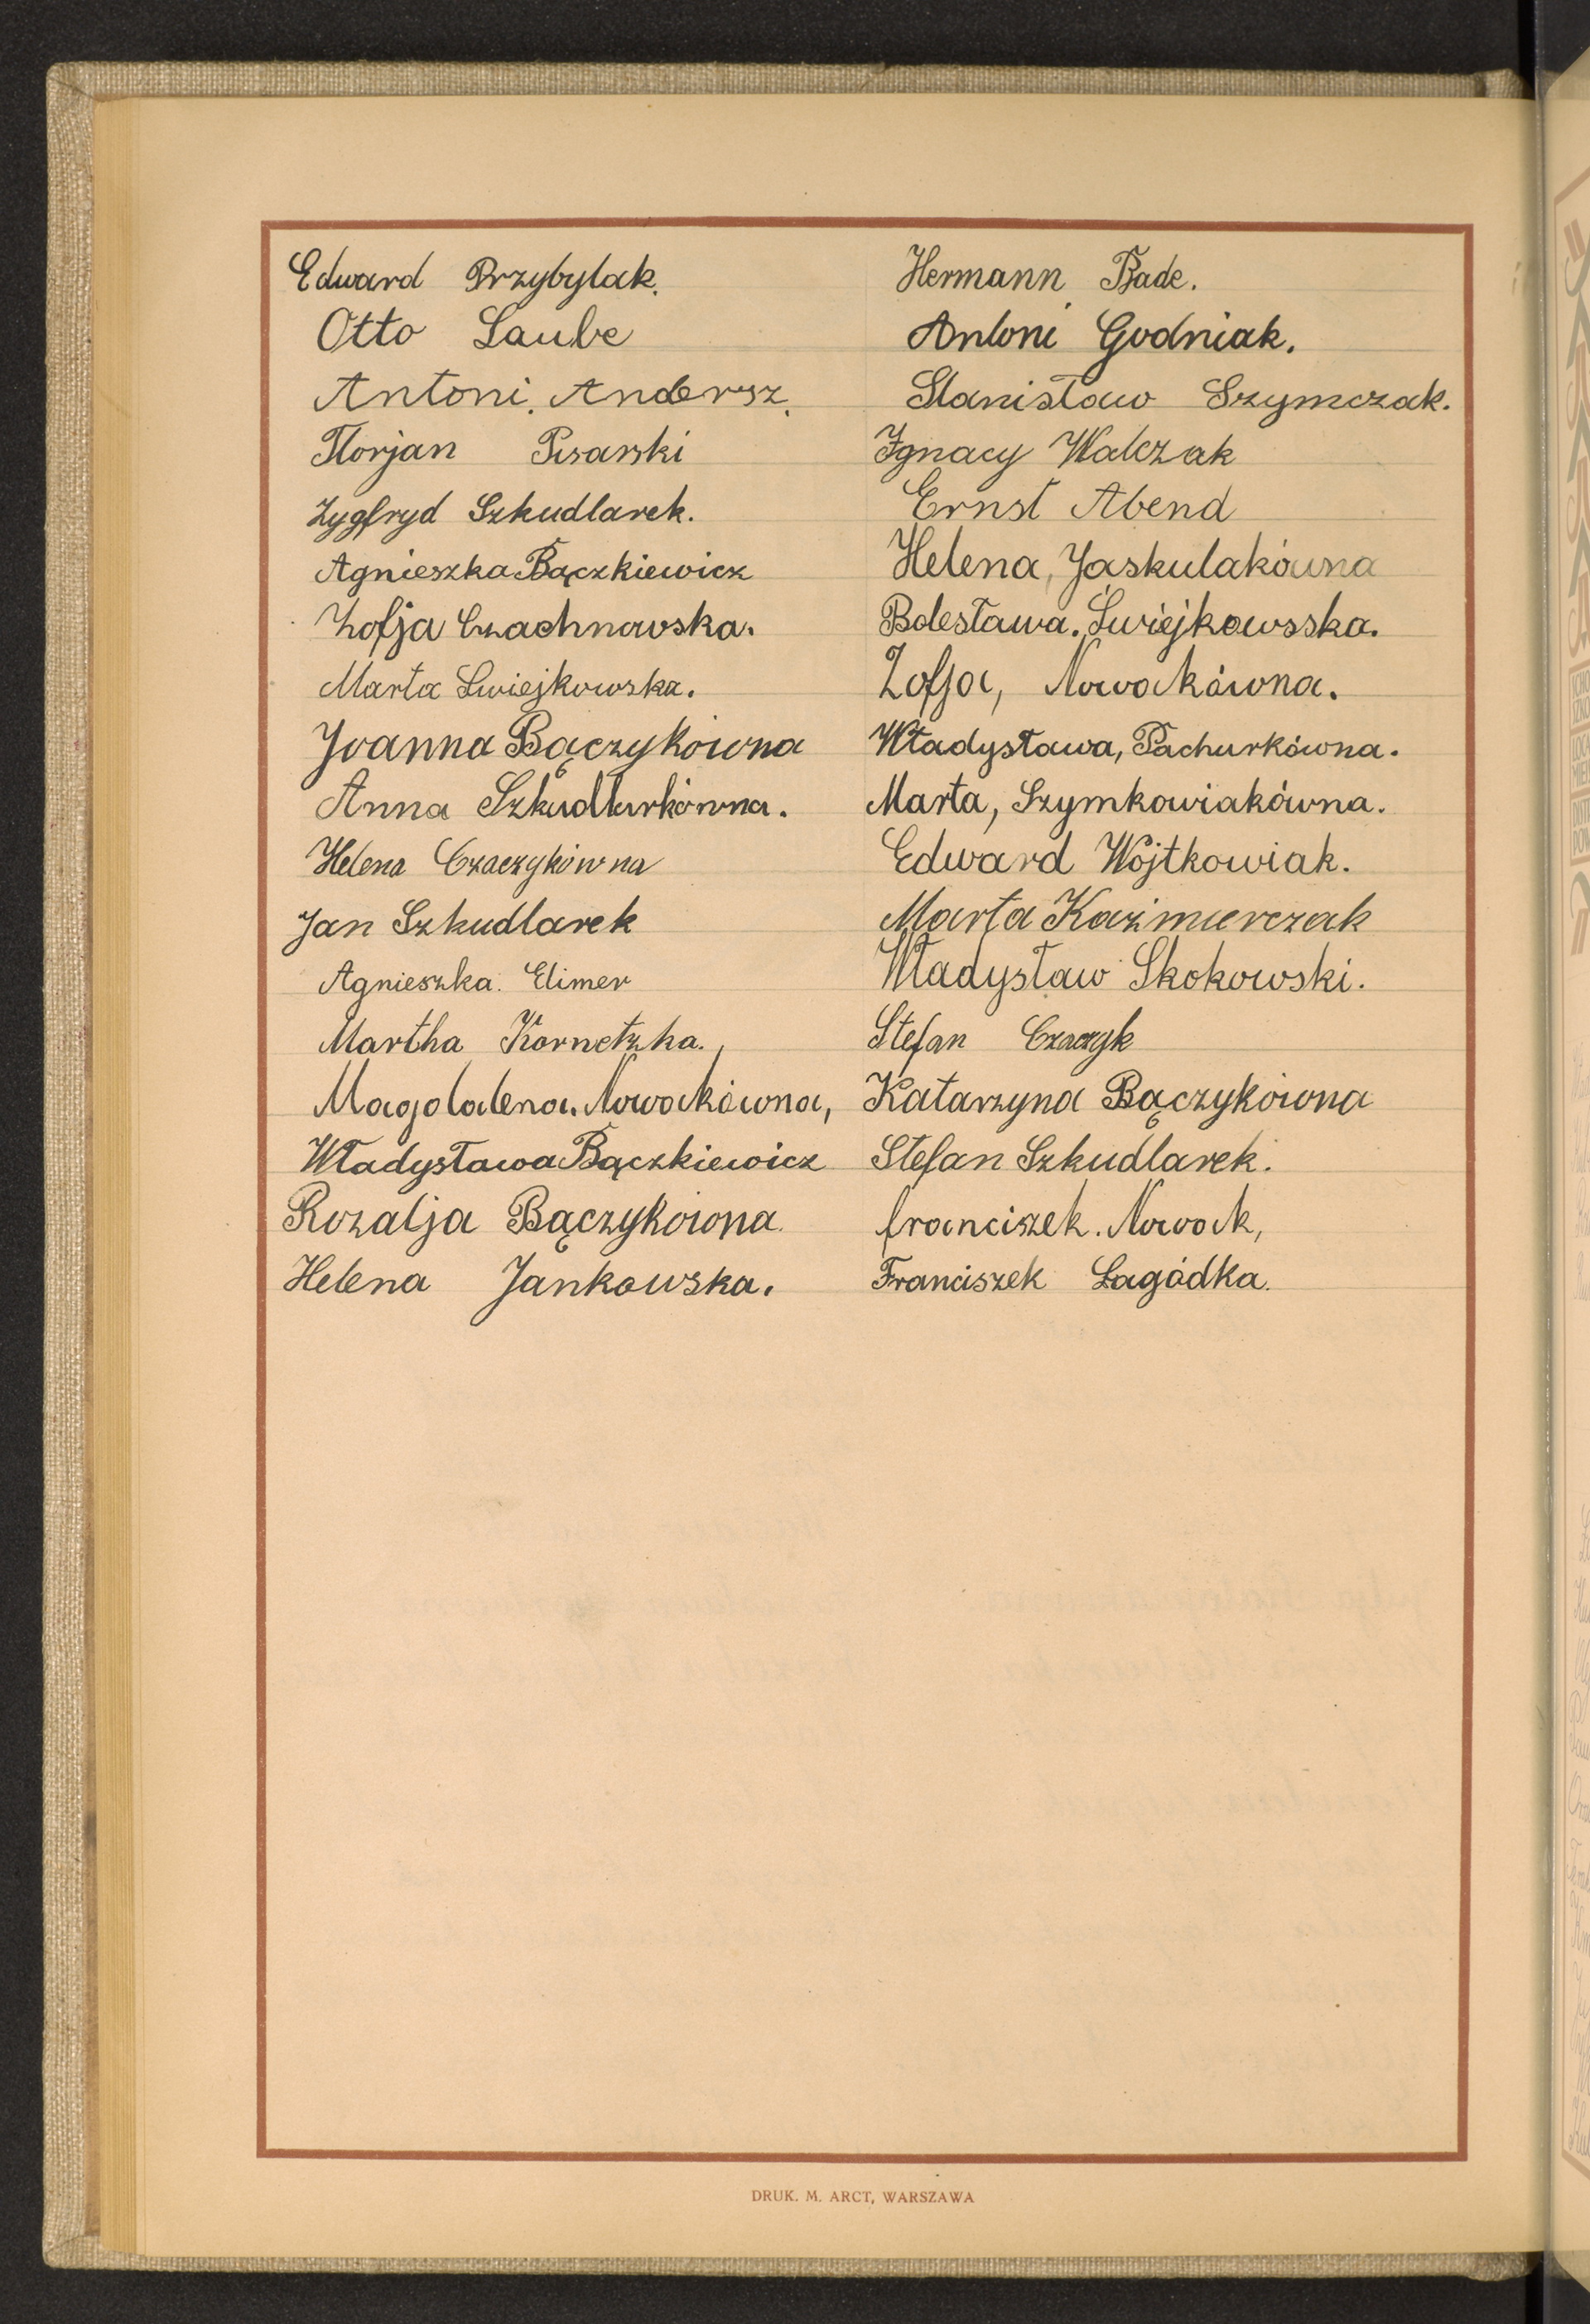 Edward Przybylak.
Otto Laube
Antoni. Andersz.
Florjan Pisarski
Zygfryd Szkudlarek.
Agnieszka Bączkiewicz
Zofja Czachnowska.
Marta Swiejkowska.
Joanna Bączykówna
Anna Szkudlarkówna.
Helena Czaczykówna
Jan Szkudlarek
Agnieszka. Elimer
Martha Kornetzka.
Magdalena. Nowakówna,
Władysława Bączkiewicz
Rozalja Bączykówna
Helena Jankowska.
Hermann Bade.
Antoni Godniak.
Stanisław Szymczak.
Ignacy Walczak
Ernst Abend
Helena, Jaskulakówna
Bolesława. Świejkowsska.
Zofja, Nowakówna.
Władysława, Pachurkówna.
Marta, Szymkowiakówna.
Edward Wojtkowiak.
Marta Kaźmierczak
Władysław Skokowski.
Stefan Czaczyk
Katarzyna Bączykówna
Stefan Szkudlarek.
franciszek. Nowak,
Franciszek Łagódka.
DRUK. M. ARCT, WARSZAWA